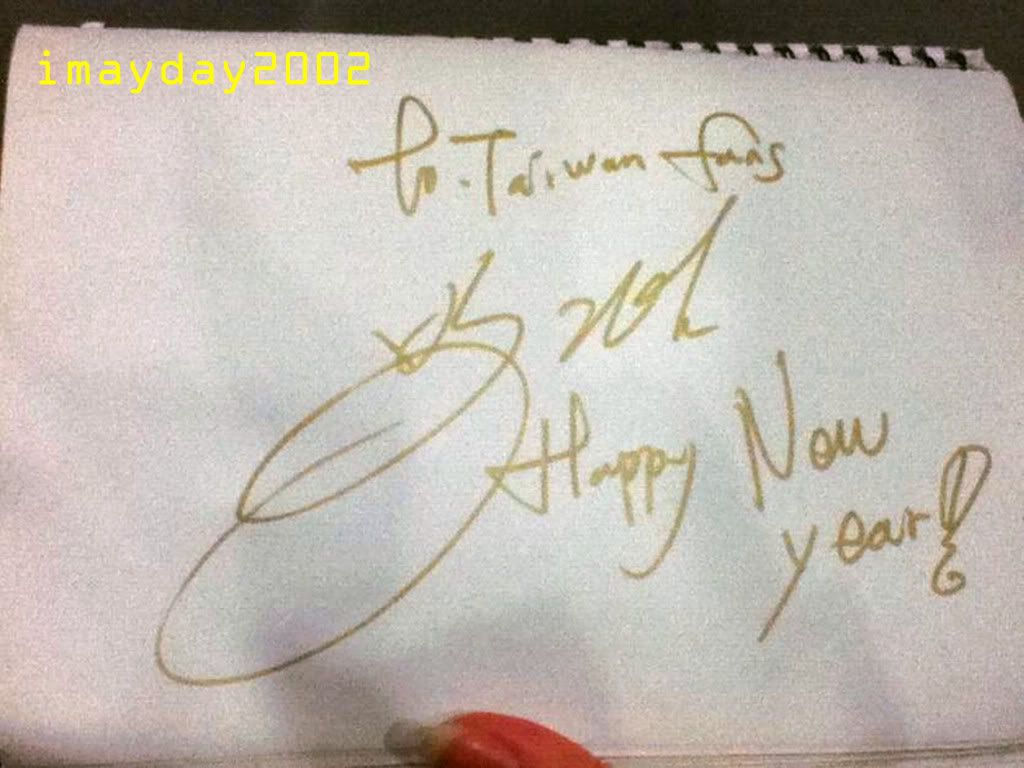 imayday2002
to. Taiwan fans
Happy New
year!